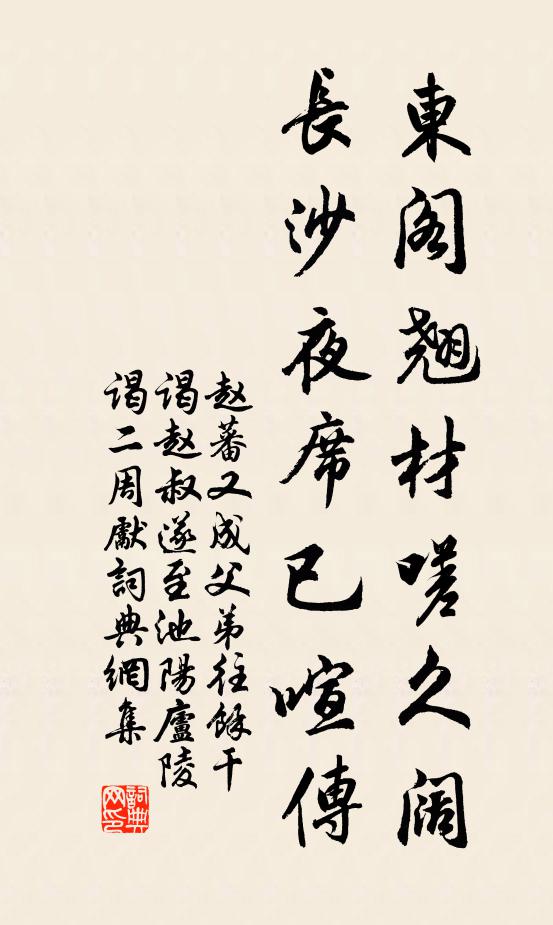 東阁翘材嗟久阔
長沙夜席已喧傳
赵蕃又成父弟往餘干
谒赵叔遂至池陽廬陵
谒二周獻詞典網集
詞典网印